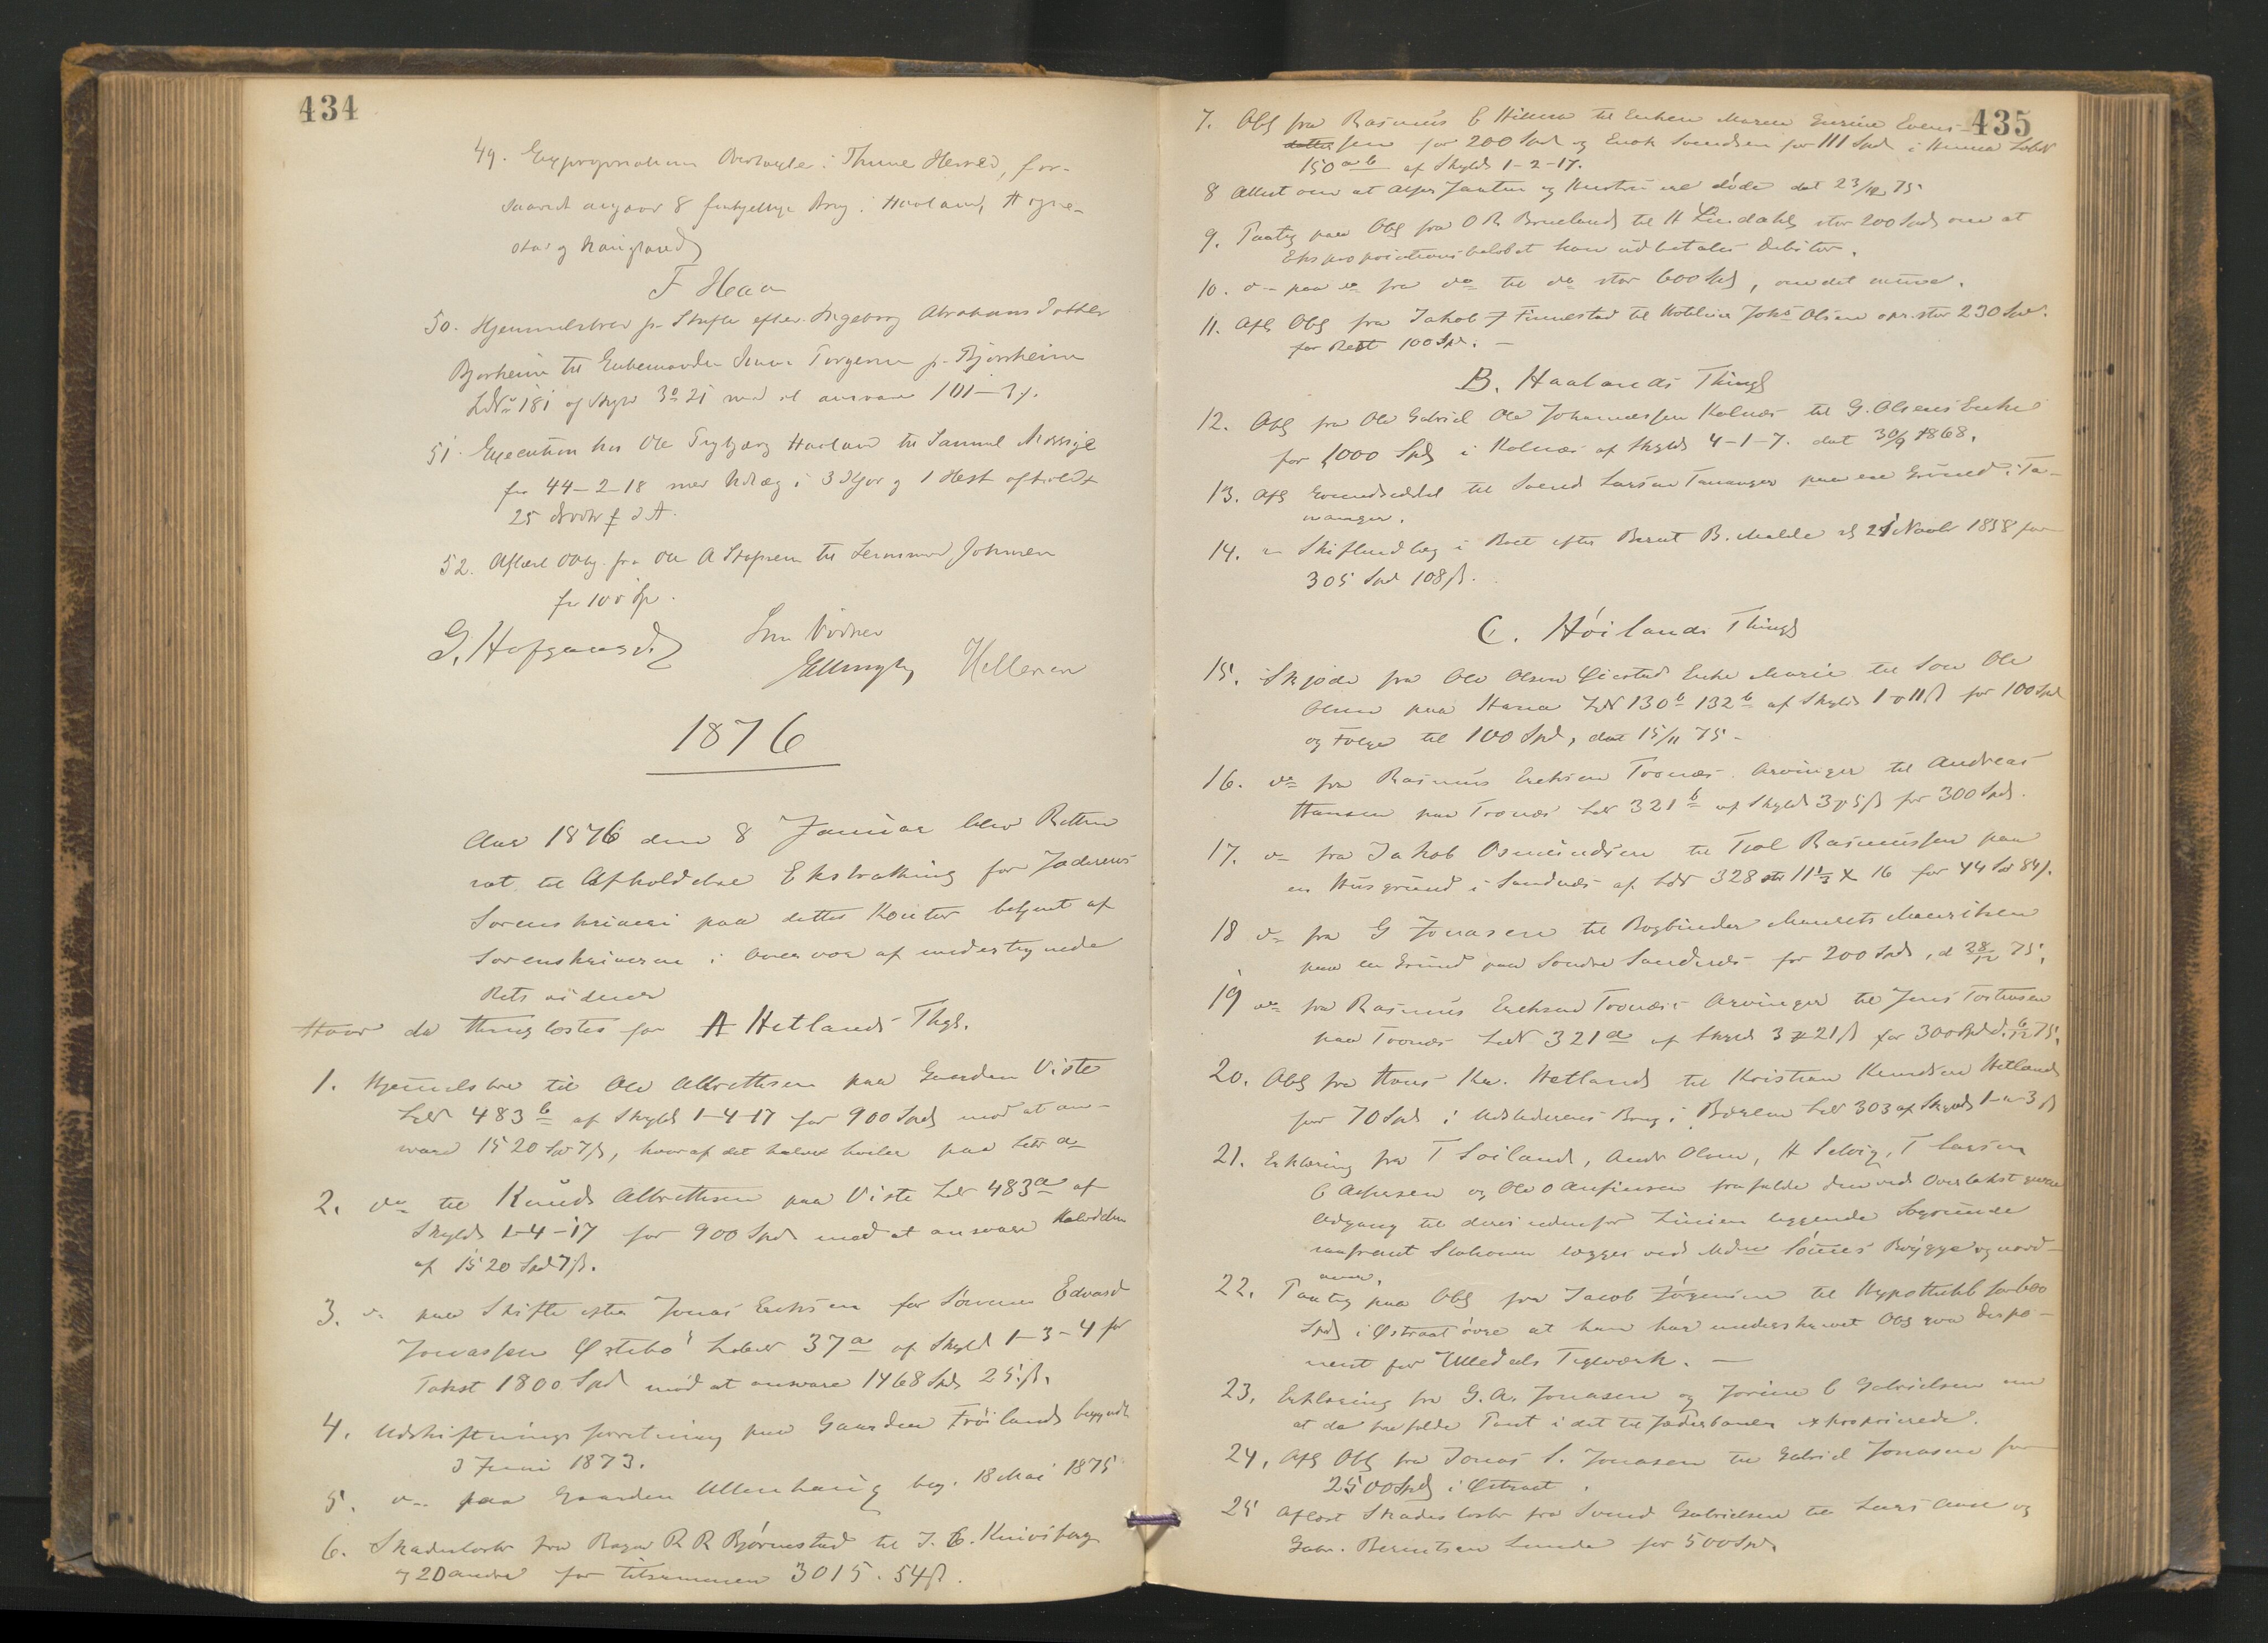 434
49. Expropriations Overtagter i Thime Herred, for-
saavidt angaar 8 Brug i Haaland, Hogne-
stad og
F Haa
50. Hjemmelsbrev p. Skifte efter Ingeborg Abrahamsdatter
Bjorheim til Enkemanden Torgersen p. Bjorheim
LNo 181 af Skyld 3 21 med at ansvare
51. Execution hos Ole Haaland til Samuel
for 44-2-18 med Udlæg i 3 Kjør og 1 Hest afholdt
25 d. A.
52. Aflæst Oblg. fra Ole A til Johnsen
for 100 Sp.
G. Hofgaard Helleren
1876
Aar 1876 den 8 Januar blev Retten
sat til Afholdelse Ekstrathing for Jæderens
Sorenskriveri paa dettes Kontor betjent af
Sorenskriveren i Overvær af undertegnede
Retsvidner
Hvor da thinglæstes for A Hetlands Thgl.
1. Hjemmelsbrev til Ole Albrethsen paa Gaarden Viste
LN 483 b af Skyld 1-4-17 for 900 Spd mod at an-
svare 1520 Spd 7 ß, hvoraf det halve hviler paa LN a
2. do til Knud Albrethsen paa Viste LN 483 a af
Skyld 1-4-17 for 900 Spd mod at ansvare Halvdelen
af 1520 Spd 7 ß.
3. do paa Skifte efter Jonas Eriksen for Sønnen Edvard
Jonassen Østebø LN 37 a af Skyld 1-3-4 for
Takst 1800 Spd mod at ansvare 1468 Spd 25 ß.
4. Udskiftningsforretning paa Gaarden Frøiland begyndt
3 Juni 1873.
5. do paa Gaarden Ullenhaug beg. 18 Mai 1875
6. Skadesløsbr fra Bager R R Bjørnestad til J. C. Knivsberg
og 2 andre for tilsammen 3015. 54 ß.
435
7. Obl fra Rasmus E Hinna til Enken Maren Evens-
sen for 200 Spd og Enok Svendsen for 111 Spd i Hinna LNo
150 a b af Skyld 1-2-17.
8 Attest om at Jaatten og Hustru ere døde dat 23/12 75.
9. Paateg paa Obl fra O R Brueland til H Lindahl stor 200 Spd om at
Ekspropriationsbeløbet kan udbetales Debitor.
10. do paa do fra do til do stor 600 Spd, om det samme.
11. Afl Obl fra Jakob J Finnestad til Johs Olsen opr. stor 230 Spd.
for Rest 100 Spd. -
B. Haalands Thingl
12. Obl fra Ole Gabriel Ole Johannessen Kolnæs til G. Olsens Enke
for 1000 Spd i Kolnæs af Skyld 4-1-7. dat 30/9 1868.
13. Afl Grundseddel til Svend Larsen Tananger paa en Grund i Ta-
nanger.
14. do Skifteudlæg i Boet efter Berent B. Malde af 21 Novbr 1858 for
305 Spd 108 ß.
C. Høilands Thingl
15. Skjøde fra Ole Olsen Enke Marie til Søn Ole
Olsen paa Hana LN 130 b 132 b af Skyld 1 11 ß for 100 Spd
og Folge til 100 Spd, dat 15/11 75 -
16. do fra Rasmus Eriksen Tronæs Arvinger til Andreas
Hansen paa Tronæs LN 321 b af Skyld 3 5 ß for 300 Spd.
17. do fra Jakob Osmundsen til Tjøl Rasmussen paa
en Husgrund i Sandnæs af LN 328 11 1/3 X 16 for 44 Spd 84 ß.
18 do fra G Jonasen til Bogbinder Maurits Mauritsen
paa en Grund paa Søndre Sandnæs for 200 Spd, d 28/12 75.
19 do fra Rasmus Eriksen Tronæs Arvinger til Jens Torkensen
paa Tronæs LN 321 a af Skyld 3 21 ß for 300 Spd d. 6/12 75.
20. Obl fra Hans Kn. Hetland til Kristian Knudsen Hetland
for 70 Spd i Udstederens Brug i LN 303 af Skyld 1-3 ß
21. Erklæring fra T Soiland, Andr Olsen, H Selvig, T Larsen
C Aspersen og Ole O Anfinsen frafalde den ved Overtakst givne
Adgang til deres udenfor Linien liggende Søgrunde
Stationen lægges ved Brygge og nord-
over.
22. Paateg paa Obl fra Jacob Jörgensen til Hypothekb for 600
Spd i Østraat øvre at han har underskrevet Obl som Dispo-
nent for Ulledals Teglværk. -
23. Erklæring fra G. A. Jonasen og Jorine C Gabrielsen om
at de frafalde Pant i det til Jæderbanen exproprierede.
24, Afl Obl fra Jonas S. Jonasen til Gabriel Jonasen for
2500 Spd i Østraat.
25 Aflæst Skadesløsbr fra Svend Gabrielsen til Lars Aase og
Gabr. Berentsen Lunde for 500 Spd.